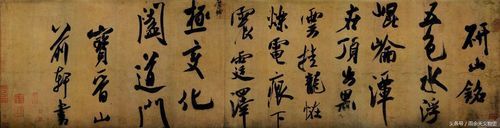 研山銘
五色水浮
崐崘潭
在頂出黑
雲挂龍怪
爍電痕下
震霆澤
極變化
闔道門
寶晉山
前軒書
头条号 /